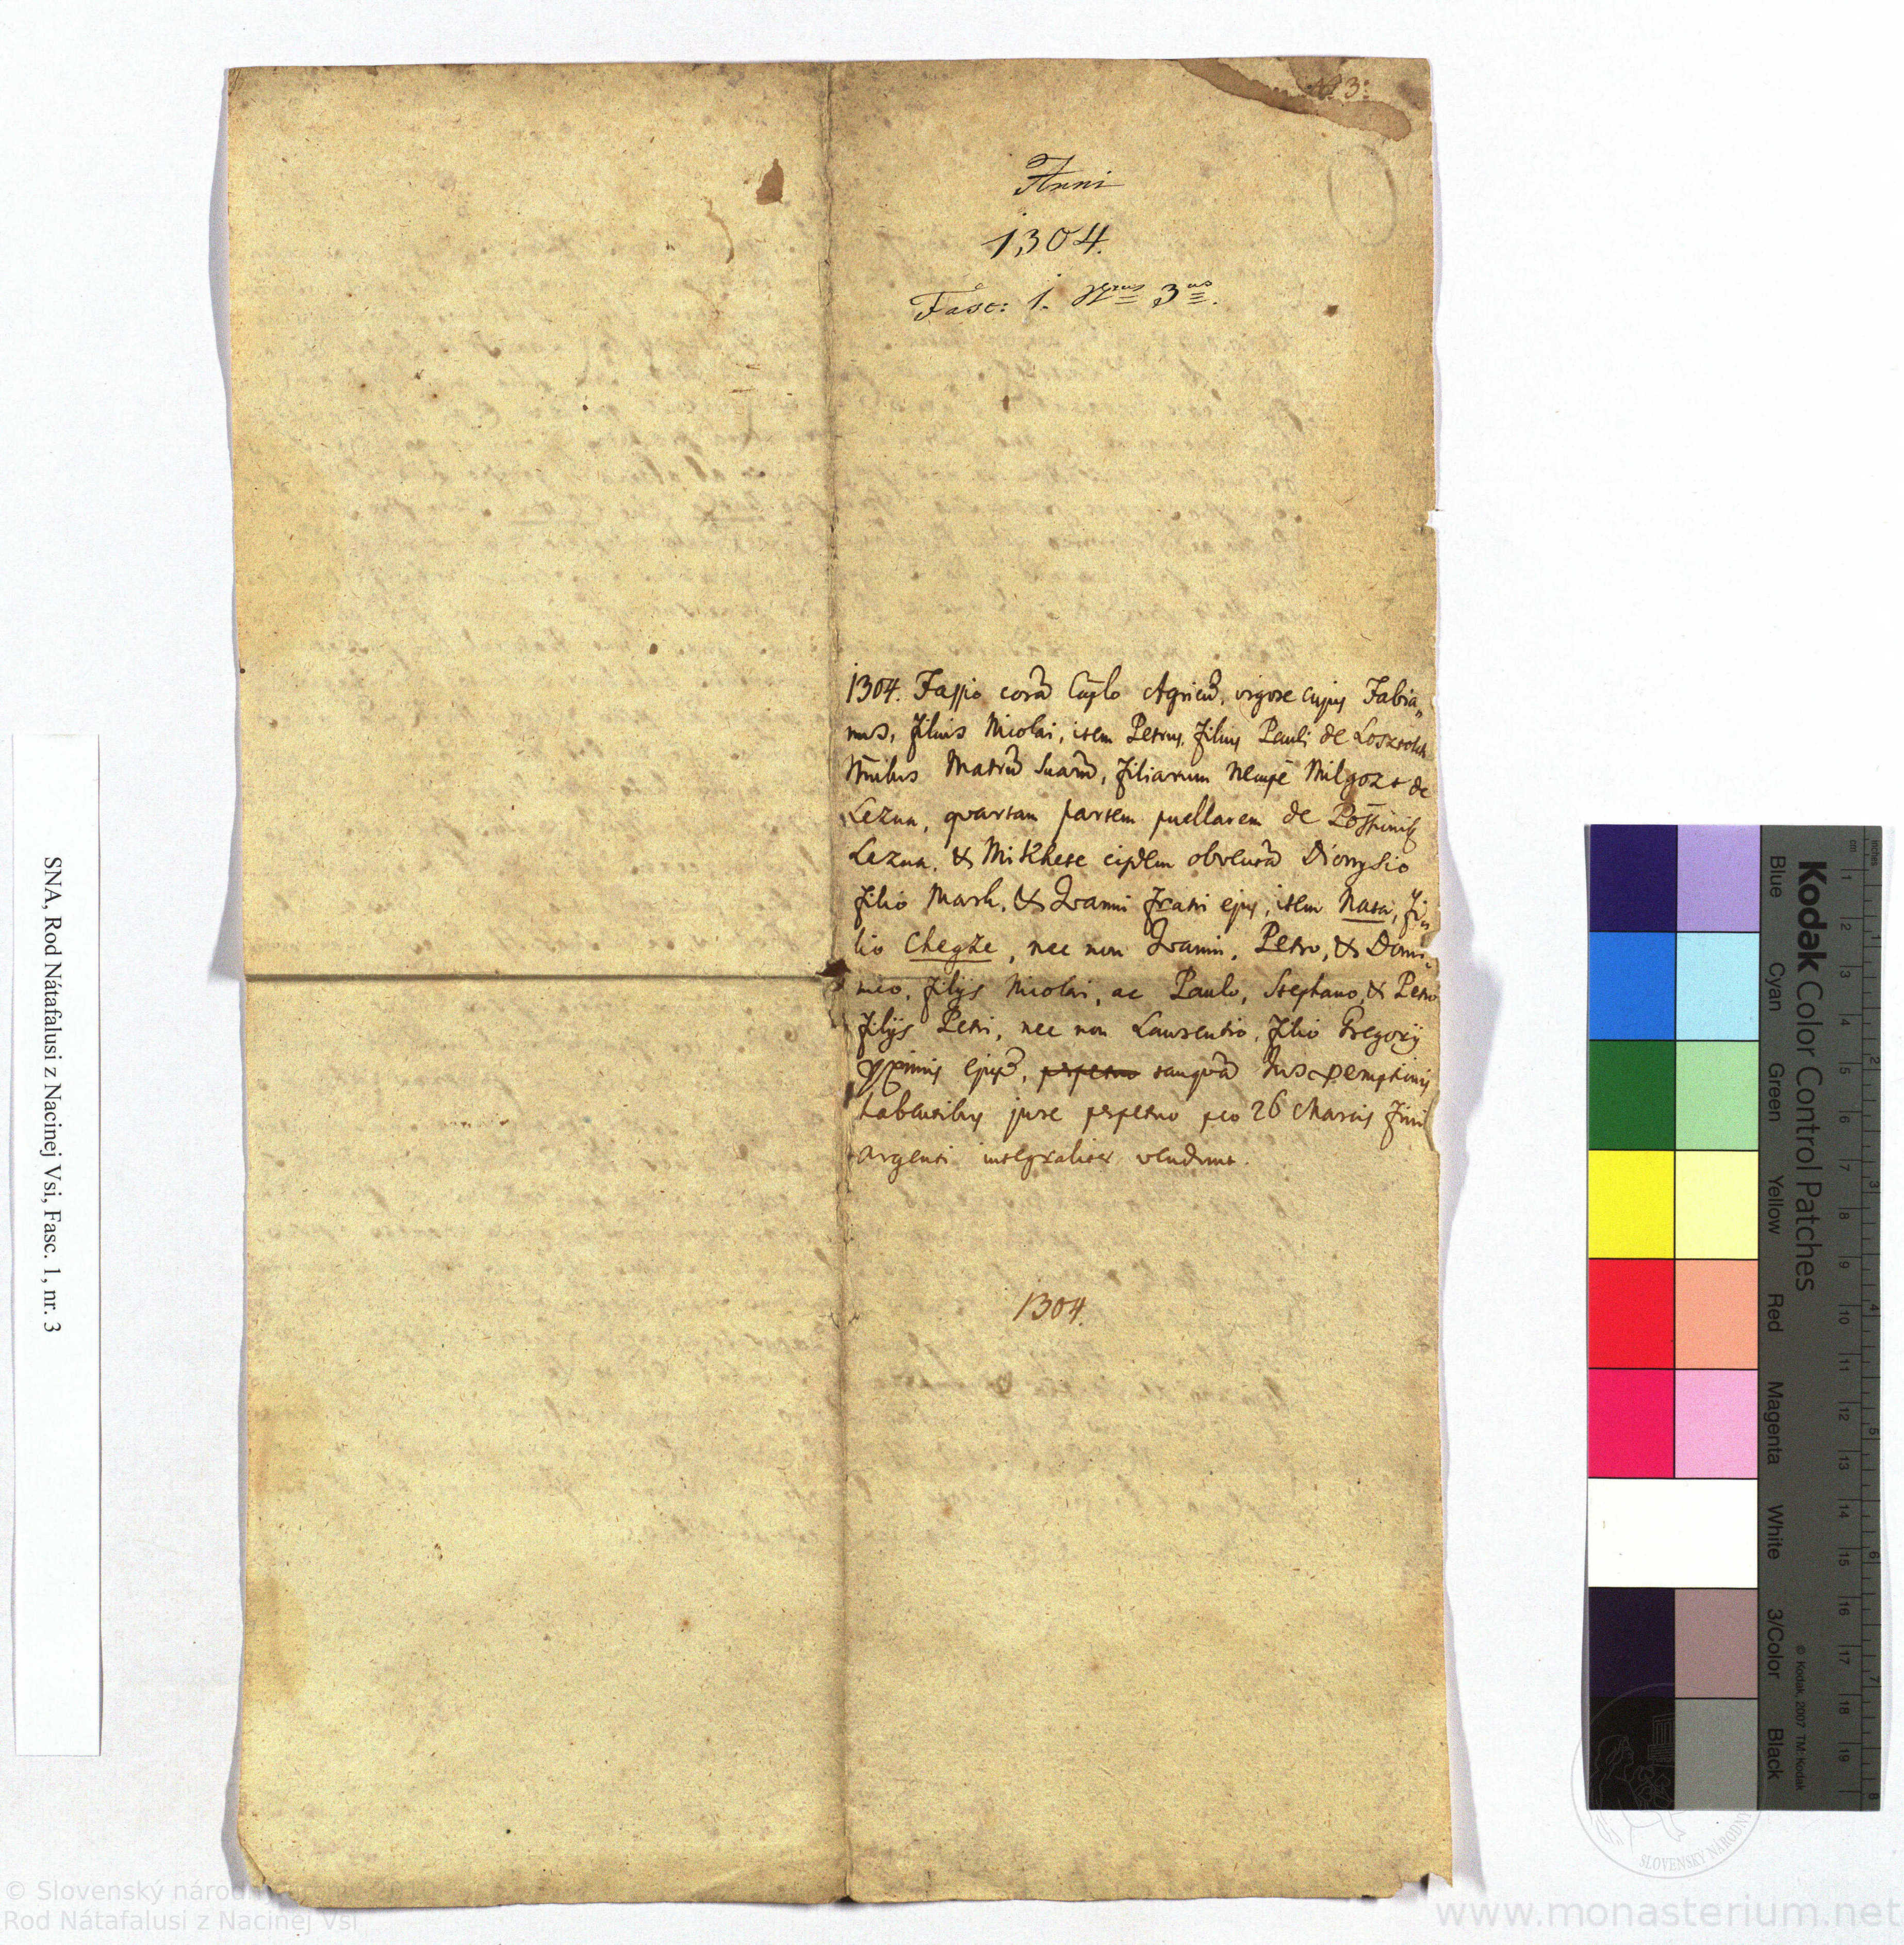 No 3:
Anni
1304.
Fasc: 1. Nrus 3us.
1304. Fassio corā Cap̄lo Agrien̄, vigore cujus Fabia„
nus, filius Nicolai, item Petrus, filius Pauli de
Matrū Suarū, filiarum nempe Milgozt de
Lezna, qvartam partem puellarem de
Lezna, & Mikhete eisdem Dionysio
filio Mark, & Ivanni fratri ejus, item Nata, fi„
lio Chegze, nec non Ivanni, Petro, & Domi„
nico, filijs Nicolai, ac Paulo, Stephano, & Petro
filijs Petri, nec non Laurentio, filio Gregorij
tanqvā
habentibus jure perpetuo pro 26 Marcis fini
argenti integraliter vendunt.
1304.
SNA, Rod Nátafalusi z Nacinej Vsi, Fasc. 1, nr. 3
Kodak Color Control Patches
Blue
Cyan
Green
Yellow
Red
Magenta
White
3/Color
Black
© Kodak, 2007 TM: Kodak
inches
cm
1 2 3 4 5 6 7 8 9 10 11 12 13 14 15 16 17 18 19
1 2 3 4 5 6 7 8
SLOVENSKÝ NÁRODNÝ
© Slovenský národný archív 2010
Rod Nátafalusi z Nacinej Vsi
www.monasterium.net